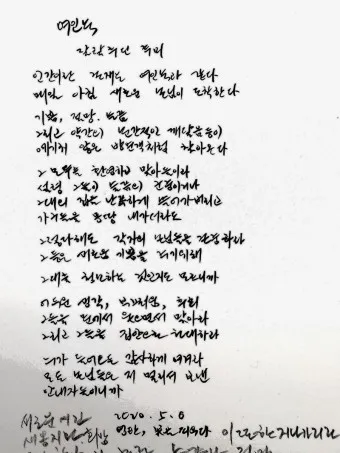 여인숙
잘랄루딘 루미
인간이란 존재는 여인숙과 같다
매일 아침 새로운 손님이 도착한다
기쁨, 절망, 슬픔
그리고 약간의 순간적인 깨달음 등이
예기치 않은 방문객처럼 찾아온다
그 모두를 환영하고 맞아들이라
설령 그들이 슬픔의 군중이거나
그대의 집을 난폭하게 쓸어가버리고
가구들을 몽땅 내가더라도
그렇다해도 각각의 손님들을 존중하라
그들은 새로운 기쁨을 주기위해
그대를 청소하는 것인지도 모르니까
어두운 생각, 부끄러움, 후회
그들을 문에서 웃으면서 맞아라
그리고 그들을 집안으로 초대하라
누가 들어오든 감사하게 여겨라
모든 손님들은 저 멀리서 보낸
안내자들이니까
2020. 5. 0